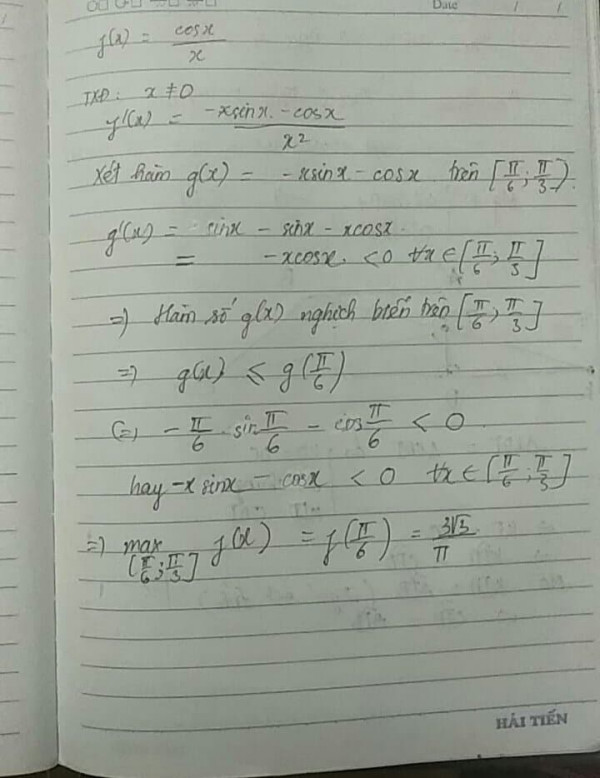 Date / /
f(x) = cosx / x
TXĐ: x ≠ 0
f'(x) = (-xsinx - cosx) / x²
Xét hàm g(x) = -xsinx - cosx trên [π/6; π/3].
g'(x) = sinx - sinx - xcosx.
= -xcosx. < 0 ∀x ∈ [π/6; π/3]
=> Hàm số g(x) nghịch biến trên [π/6; π/3]
=> g(x) ≤ g(π/6)
(=) -π/6 . sin π/6 - cos π/6 < 0.
hay -x sinx - cosx < 0 ∀x ∈ [π/6; π/3]
=> max [π/6; π/3] f(x) = f(π/6) = 3√3 / π.
HẢI TIẾN